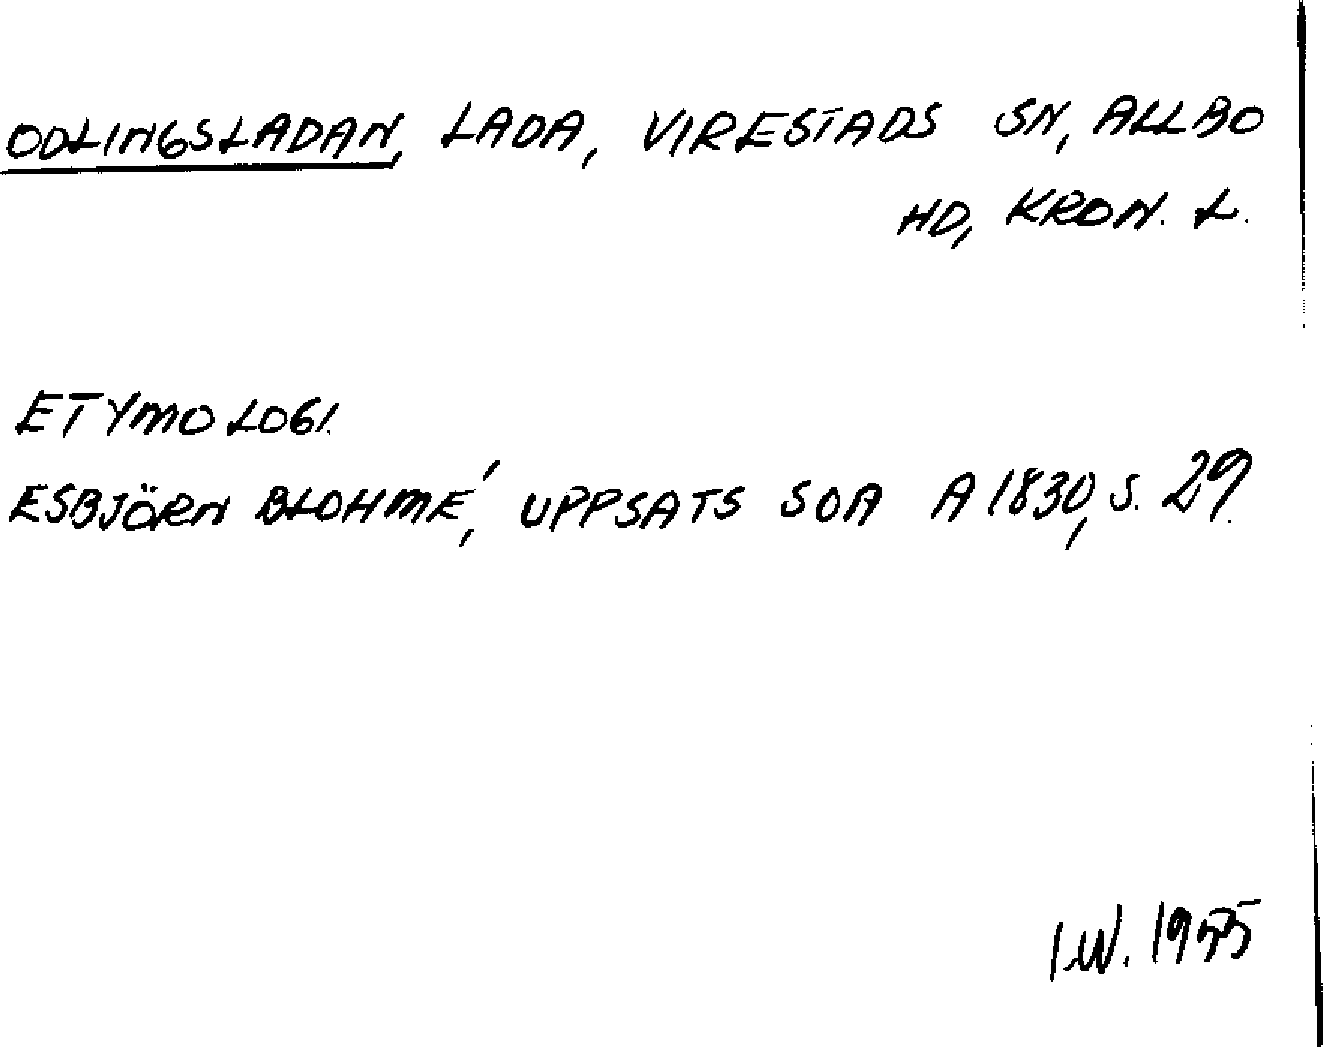 ODLINGSLADAN, LADA, VIRESTADS SN, ALLBO
HD, KRON. L.
ETYMOLOGI.
ESBJÖRN BLOHMÉ, UPPSATS SOA A 1830, S. 29.
I.W. 1955